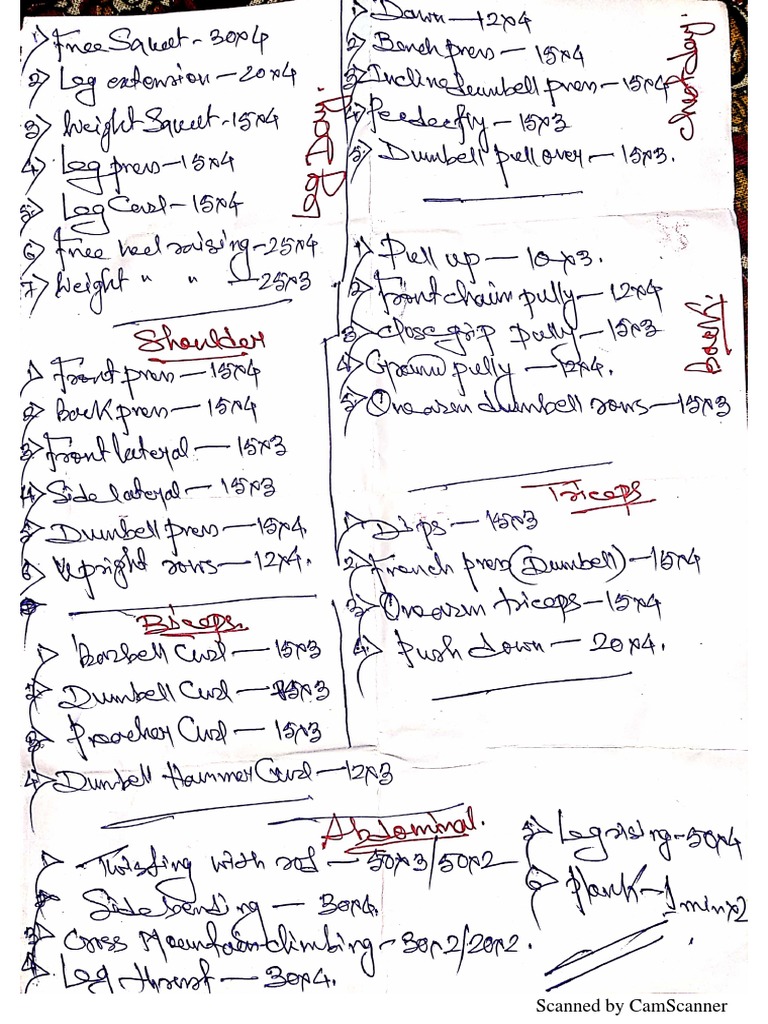 Leg Day.
1) Free Squet - 30×4
2) Leg extension - 20×4
3) Weight Squet - 15×4
4) Leg press - 15×4
5) Leg Curl - 15×4
6) Free heel raising - 25×4
7) Weight " " - 25×3
Shoulder
1) Front press - 15×4
2) Back press - 15×4
3) Front lateral - 15×3
4) Side lateral - 15×3
5) Dumbell press - 15×4
6) Upright rows - 12×4.
Biceps.
1) Barbell Curl - 15×3
2) Dumbell Curl - 15×3
3) Preacher Curl - 15×3
4) Dumbell Hammer Curl - 12×3
Chest day.
1) Dawn - 12×4
2) Bench press - 15×4
3) Incline dumbell press - 15×4
4) Peedeefly - 15×3
5) Dumbell pull over - 15×3.
Back.
1) Pull up - 10×3.
2) Front chain pully - 12×4
3) Close grip pully - 15×3
4) Ground pully - 12×4.
5) One arm dumbell rows - 15×3
Triceps
1) Dips - 15×3
2) French press (Dumbell) - 15×4
3) One arm triceps - 15×4
4) Push down - 20×4.
Abdominal.
1) Twisting with rod - 50×3/50×2
2) Side bending - 30×4.
3) Cross Mountain climbing - 30×2/20×2.
4) Leg thrust - 30×4.
5) Leg rising - 50×4
6) Plank - 1 min×2
Scanned by CamScanner